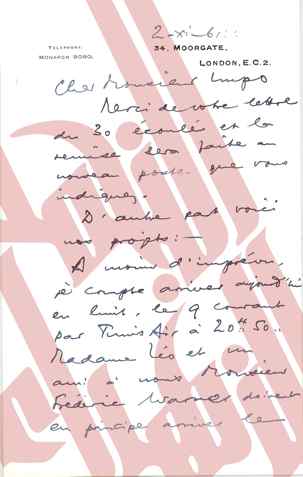 2-xi-61 :
TELEPHONE:
MONARCH 8080.
34, MOORGATE,
LONDON, E.C.2.
Cher Monsieur
Merci de votre lettre
du 30 écoulé et la
remise sera faite au
nouveau poste que vous
indiquez.
D'autre part voici
nos projets : —
A moins d'imprévu,
je compte arriver aujourd'hui
en huit, le 9 courant
par Tunis Air à 20H.50..
Madame Léo et un
ami à nous Monsieur
Frédéric Warner doivent
en principe arriver le